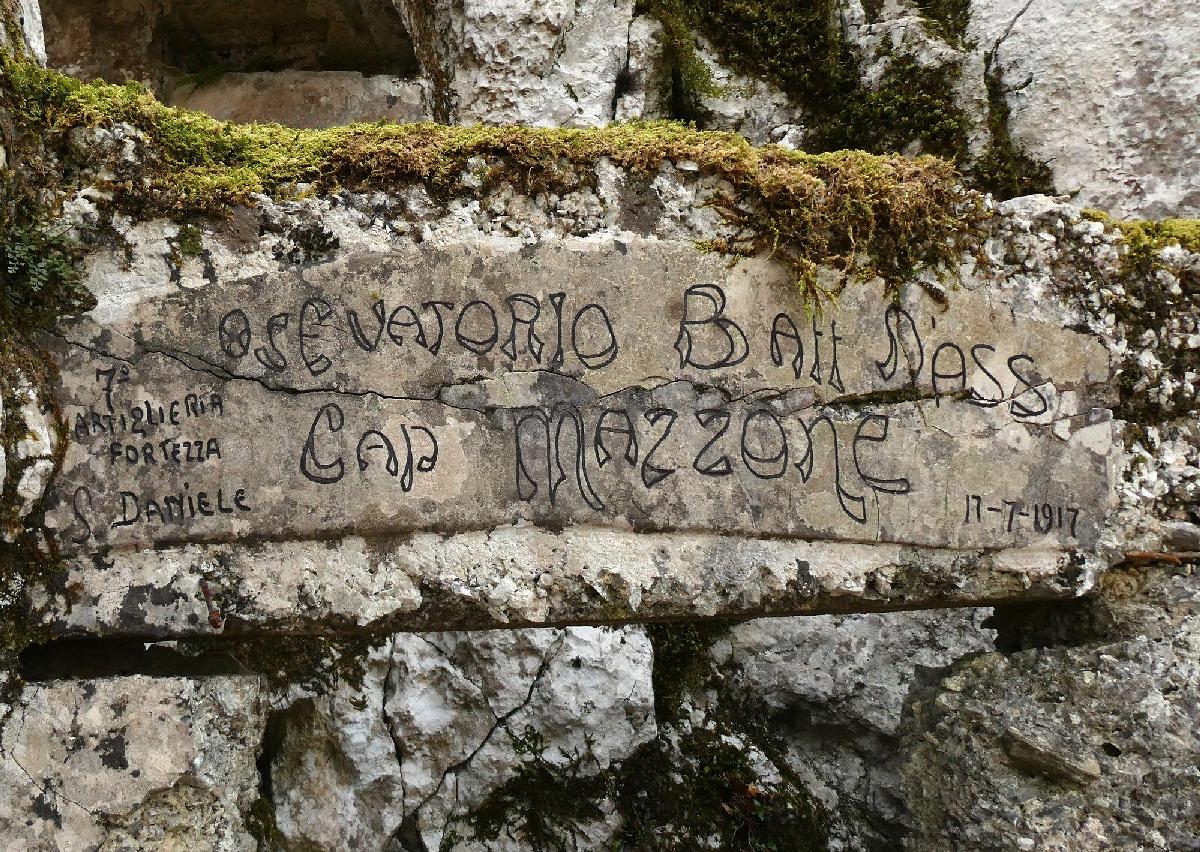 OSSEVATORIO BATT D'ASS
CAP MAZZONE
7ª
ARTIGLIERIA
FORTEZZA
S DANIELE
17-7-1917